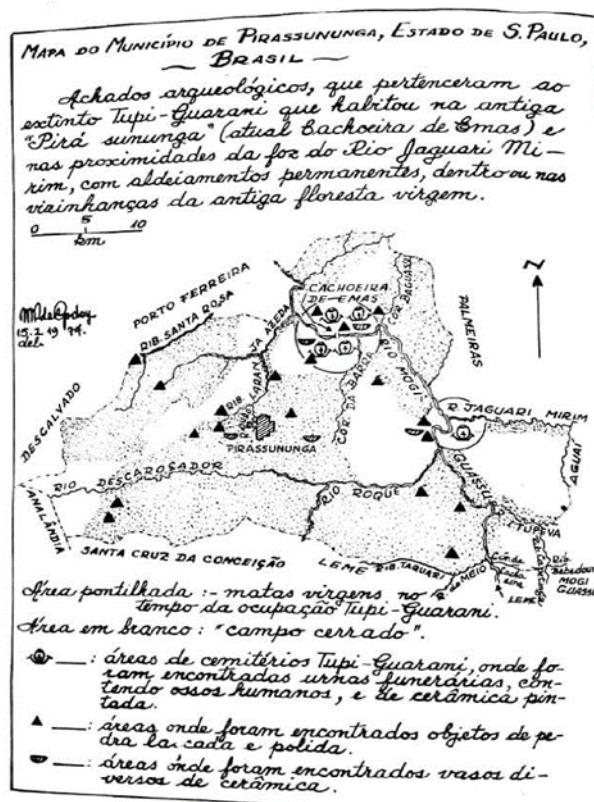 MAPA DO MUNICÍPIO DE PIRASSUNUNGA, ESTADO DE S. PAULO,
BRASIL
Achados arqueológicos, que pertenceram ao
extinto Tupi-Guarani que habitou na antiga
"Pirá sununga" (atual Cachoeira de Emas) e
nas proximidades da foz do Rio Jaguari Mi-
rim, com aldeiamentos permanentes, dentro ou nas
vizinhanças da antiga floresta virgem.
0 5 10
km
N
15.1.1974.
del.
PORTO FERREIRA
RIB. SANTA ROSA
CACHOEIRA
DE EMAS
COR. BAGUASSU
PALMEIRAS
DESCALVADO
RIB. LARANJA AZEDA
RIB.
COR. DA BARRA
RIO MOGI
GUASSU
R. JAGUARI MIRIM
AGUAÍ
PIRASSUNUNGA
ANALÂNDIA
RIO DESCAROÇADOR
RIO ROQUE
R. ITUPEVA
SANTA CRUZ DA CONCEIÇÃO
LEME
RIB. TAQUARI
R. do MEIO
LEME
MOGI
GUASSU
Área pontilhada :- matas virgens no
tempo da ocupação Tupi-Guarani.
Área em branco : "campo cerrado".
: áreas de cemitérios Tupi-Guarani, onde fo-
ram encontradas urnas funerárias, con-
tendo ossos humanos, e de cerâmica pin-
tada.
: áreas onde foram encontrados objetos de pe-
dra lascada e polida.
: áreas onde foram encontrados vasos di-
versos de cerâmica.